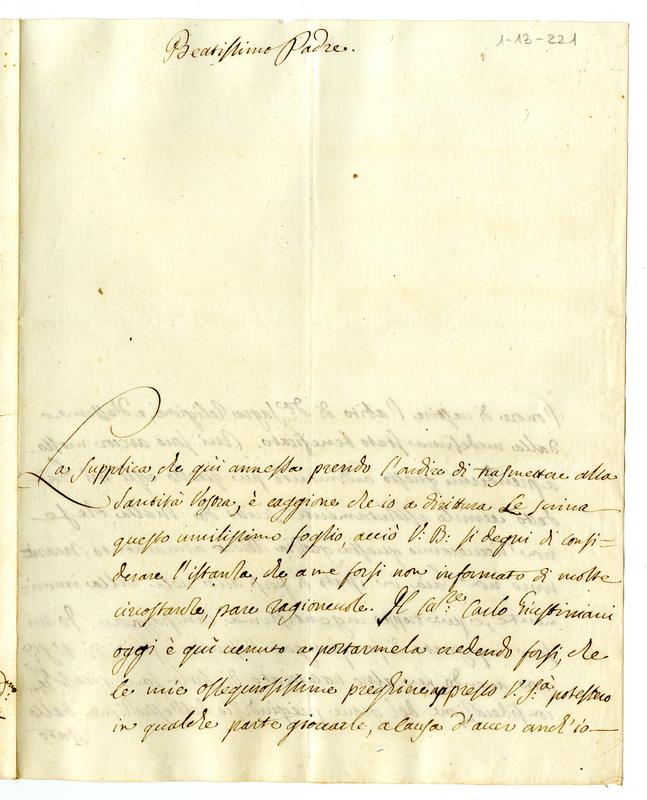 1-13-221
Beatissimo Padre.
La supplica, che quì annessa prendo l'ardire di trasmettere alla
Santità Vostra, è caggione che io a dirittura Le scriva
questo umilissimo foglio, acciò V: B: si degni di consi=
derare l'istanza, che a me forsi non informato di molte
circostanze, pare ragionevole. Il Cav:re Carlo Giustiniani
oggi è quì venuto a portarmela credendo forsi, che
le mie ossequiosissime preghiere appresso V: S:à potessero
in qualche parte giovarle, a causa d'aver anch'io